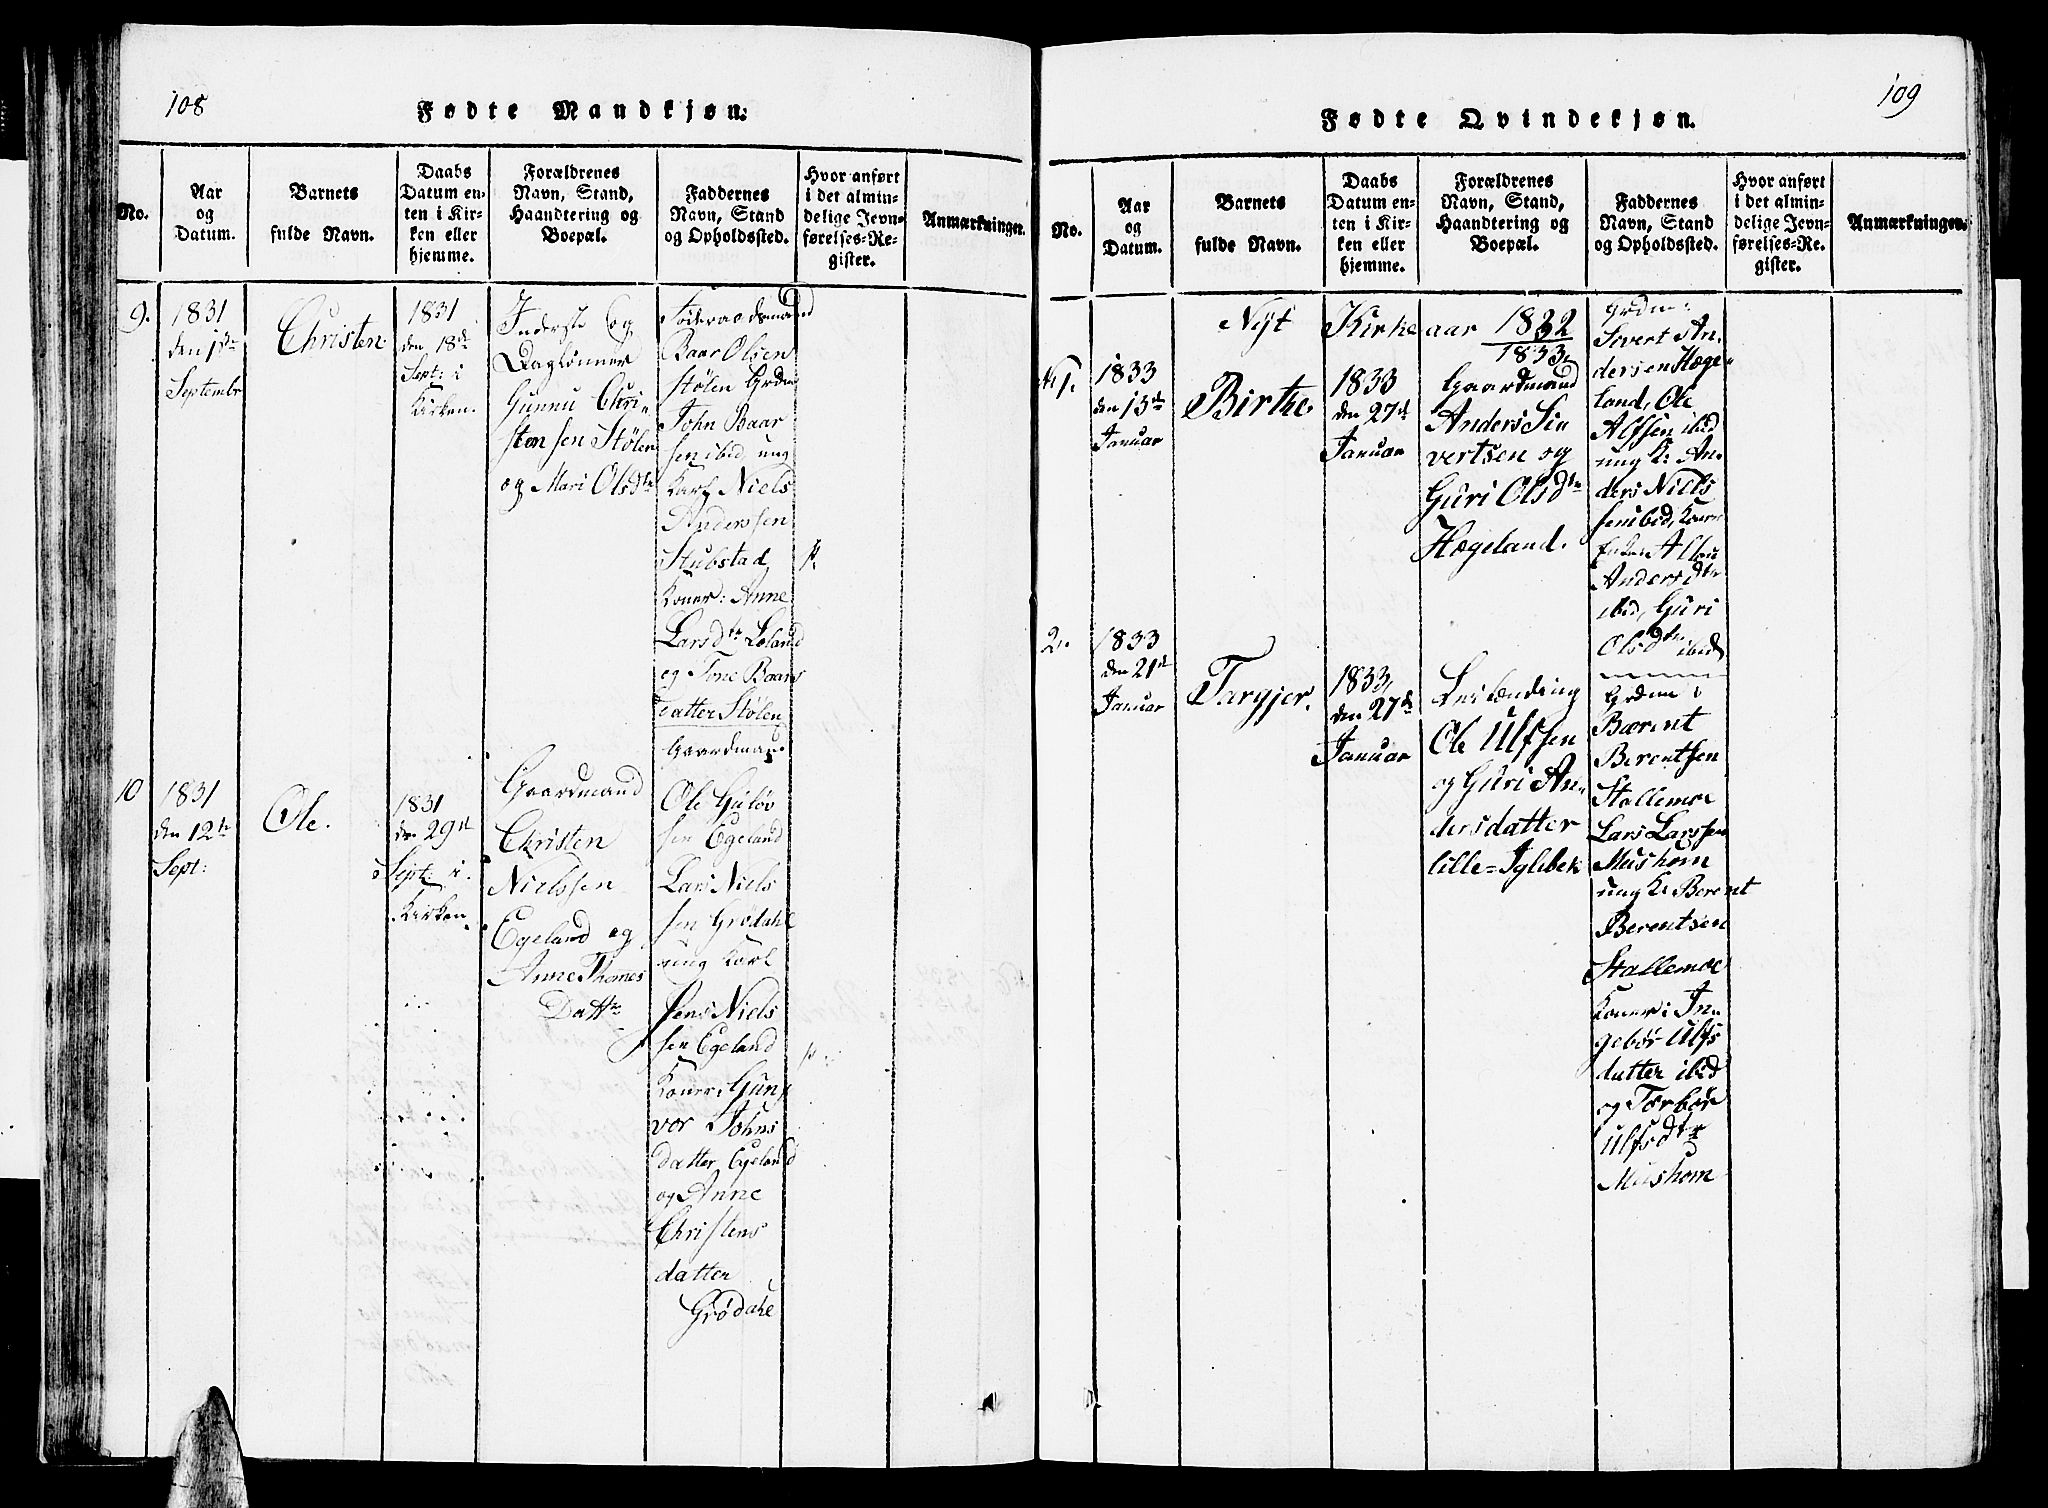 108
Fødte Mandkjøn.
No.
Aar
og
Datum.
Barnets
fulde Navn.
Daabs
Datum en-
ten i Kir-
ken eller
hjemme.
Forældrenes
Navn, Stand,
Haandtering og
Boepæl.
Faddernes
Navn, Stand
og Opholdssted.
Hvor anført
i det almin-
delige Jevn-
førelses-Re-
gister.
Anmærkninger.
9.
1831
den 1ste
Septembr
Christen
1831
den 18de
Sept: i
Kirken.
Inderste og
Daglønner
Gunnu Chri-
stensen Stølen
og Mari Olsdtr
Føderaadsmand
Baar Olsen
Stølen Grdm
John Baar
sen ibid ung
Karl Niels
Anderssen
Stubstad
Koner: Anne
Larsdtr Loland
og Tone Baars
datter Stølen
10
1831
den 12te
Sept:
Ole.
1831
den 29de
Sept: i
Kirken
Gaardmand
Christen
Nielssen
Egeland og
Anne Thomes
Dattr
Gaardmæn.
Ole Guløv
sen Egeland
Lars Niels
sen Grødahl
ung Karl
Jens Niels
sen Egeland
Koner: Gun
vor Johns
datter Egeland
og Anne
Christens
datter
Grødahl
109
Fødte Qvindekjøn.
No.
Aar
og
Datum.
Barnets
fulde Navn.
Daabs
Datum en-
ten i Kir-
ken eller
hjemme.
Forældrenes
Navn, Stand,
Haandtering og
Boepæl.
Faddernes
Navn, Stand
og Opholdssted.
Hvor anført
i det almin-
delige Jevn-
førelses-Re-
gister.
Anmærkninger.
Nyt Kirke aar 1832
1833
1.
1833
den 13de
Januar
Birthe
1833
den 27de
Januar
Gaardmand
Anders Si
vertsen og
Guri Olsdtr
Hægeland.
Grdm:
Sivert An-
dersen Hæge-
land, Ole
Alfsen ibid
ung K: An-
ders Niels
sen ibid, Koner
Andersdtr
ibid, Guri
Olsdtr ibid
2.
1833
den 21de
Januar
Targjer.
1833
den 27de
Januar
Ole Ulfsen
og Guri An-
dersdatter
lille-Iglebek
Grdmn:
Bærent
Berentsen
Stallemoe
Lars Larssen
Mushom
ung K: Berent
Berentsen
Stallemoe
Koner: In-
gebør Ulfs
datter ibid
og Torbør
Ulfsdtr
Mushom